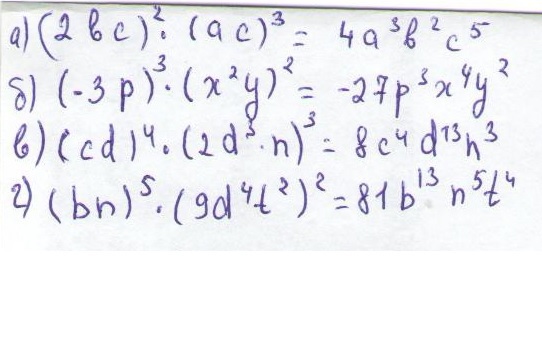 а) (2bc)²·(ac)³= 4a³b²c⁵
б) (-3p)³·(x²y)²= -27p³x⁴y²
в) (cd)⁴·(2d³·n)³= 8c⁴d¹³n³
г) (bn)⁵·(9d⁴t²)²=81b¹³n⁵t⁴